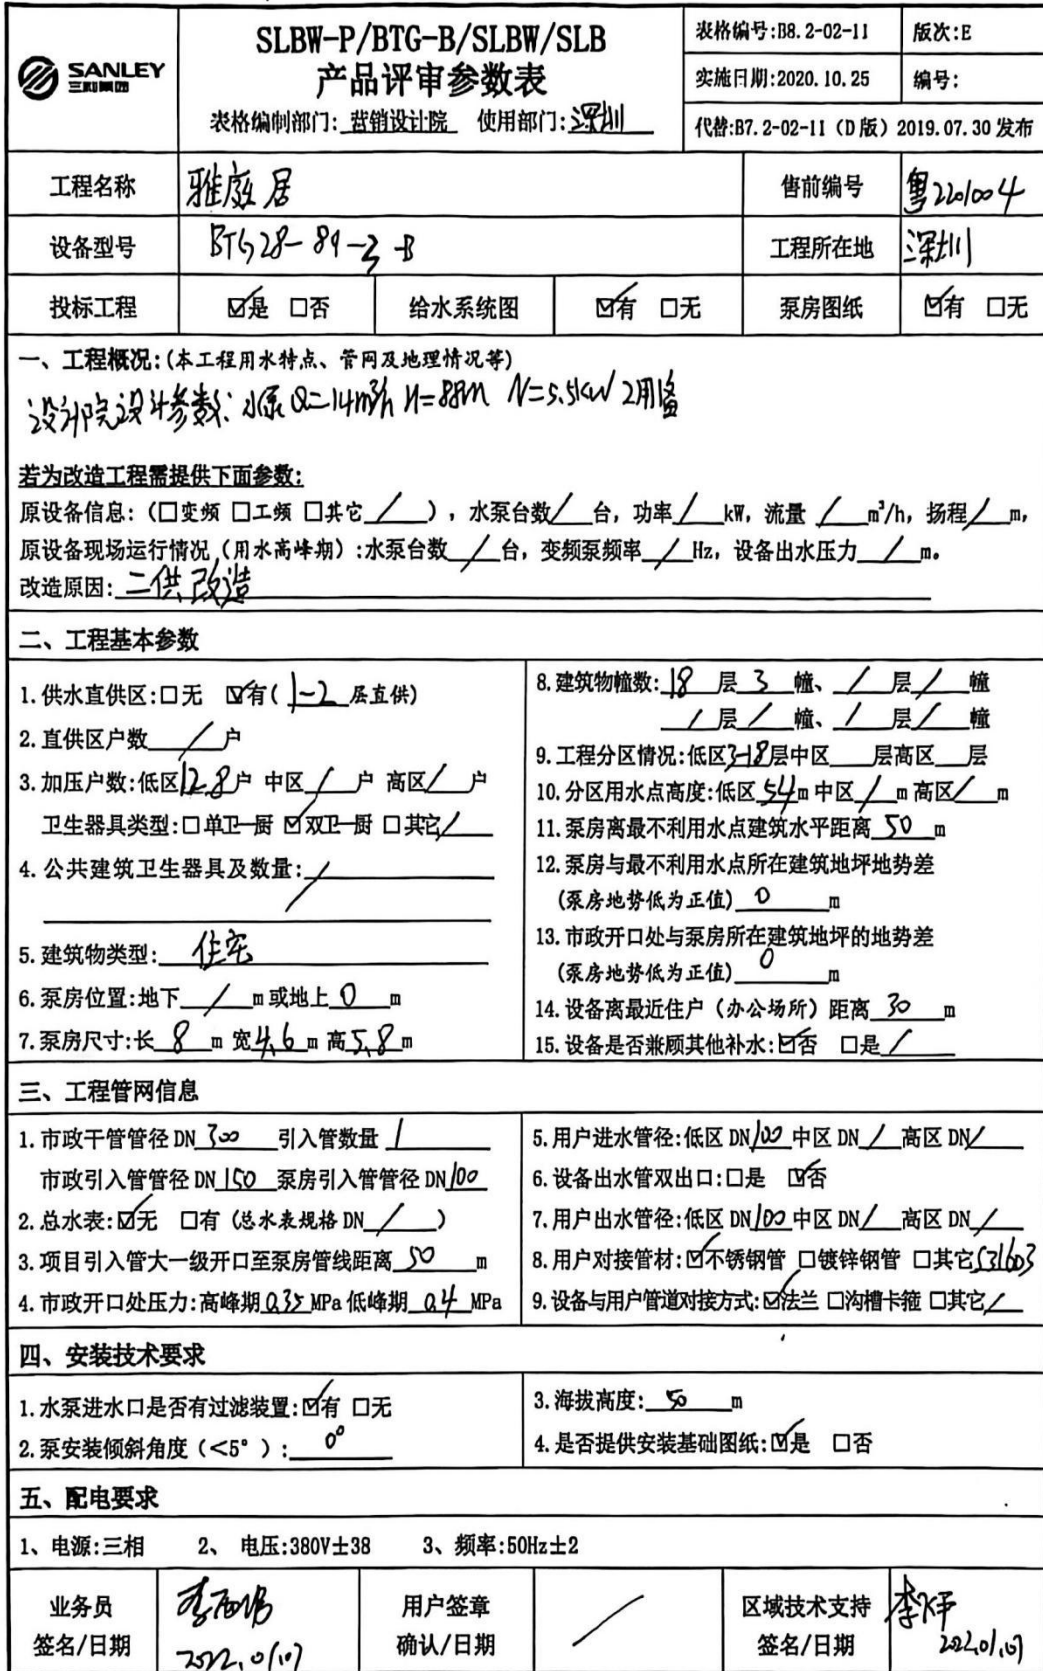 SANLEY
三利集团
SLBW-P/BTG-B/SLBW/SLB
产品评审参数表
表格编制部门:营销设计院 使用部门:深圳
表格编号:B8.2-02-11 版次:E
实施日期:2020.10.25 编号:
代替:B7.2-02-11（D版）2019.07.30发布
工程名称 雅庭居 售前编号 粤2201004
设备型号 BTG28-89-3-B 工程所在地 深圳
投标工程 ☑是 □否 给水系统图 ☑有 □无 泵房图纸 ☑有 □无
一、工程概况:(本工程用水特点、管网及地理情况等)
设计院设计参数: 水泵 Q=14m³/h H=88m N=5.5kW 2用1备
若为改造工程需提供下面参数:
原设备信息:（□变频 □工频 □其它 / ）, 水泵台数 / 台, 功率 / kW, 流量 / m³/h, 扬程 / m,
原设备现场运行情况（用水高峰期）:水泵台数 / 台, 变频泵频率 / Hz, 设备出水压力 / m。
改造原因: 二供改造
二、工程基本参数
1.供水直供区:□无 ☑有( 1-2 层直供)
2.直供区户数 / 户
3.加压户数:低区128户 中区 / 户 高区 / 户
卫生器具类型:□单卫一厨 ☑双卫一厨 □其它 /
4.公共建筑卫生器具及数量: /
5.建筑物类型: 住宅
6.泵房位置:地下 / m或地上 0 m
7.泵房尺寸:长 8 m 宽 4.6 m 高 5.8 m
8.建筑物幢数: 18 层 3 幢、 / 层 / 幢
/ 层 / 幢、 / 层 / 幢
9.工程分区情况:低区3-18层中区 层高区 层
10.分区用水点高度:低区 54 m中区 / m高区 / m
11.泵房离最不利用水点建筑水平距离 50 m
12.泵房与最不利用水点所在建筑地坪地势差
(泵房地势低为正值) 0 m
13.市政开口处与泵房所在建筑地坪的地势差
(泵房地势低为正值) 0 m
14.设备离最近住户（办公场所）距离 30 m
15.设备是否兼顾其他补水:☑否 □是 /
三、工程管网信息
1.市政干管管径DN 300 引入管数量 1
市政引入管管径DN 150 泵房引入管管径DN100
2.总水表:☑无 □有(总水表规格DN / )
3.项目引入管大一级开口至泵房管线距离 50 m
4.市政开口处压力:高峰期 0.35 MPa低峰期 0.4 MPa
5.用户进水管径:低区DN100中区DN / 高区DN /
6.设备出水管双出口:□是 ☑否
7.用户出水管径:低区DN100中区DN / 高区DN /
8.用户对接管材:☑不锈钢管 □镀锌钢管 □其它S31603
9.设备与用户管道对接方式:☑法兰 □沟槽卡箍 □其它 /
四、安装技术要求
1.水泵进水口是否有过滤装置:☑有 □无
2.泵安装倾斜角度（<5°）: 0°
3.海拔高度: 50 m
4.是否提供安装基础图纸:☑是 □否
五、配电要求
1、电源:三相 2、 电压:380V±38 3、频率:50Hz±2
业务员 用户签章 区域技术支持
签名/日期 2022.01.07 确认/日期 / 签名/日期 2022.01.07